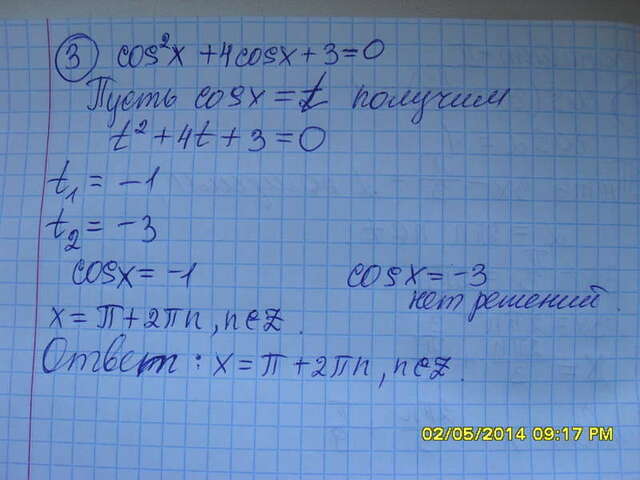 3 cos²x + 4cosx + 3 = 0
Пусть cosx = t получим
t² + 4t + 3 = 0
t₁ = -1
t₂ = -3
cosx = -1 cosx = -3
нет решений.
x = π + 2πn, n∈Z.
Ответ: x = π + 2πn, n∈Z.
02/05/2014 09:17 PM